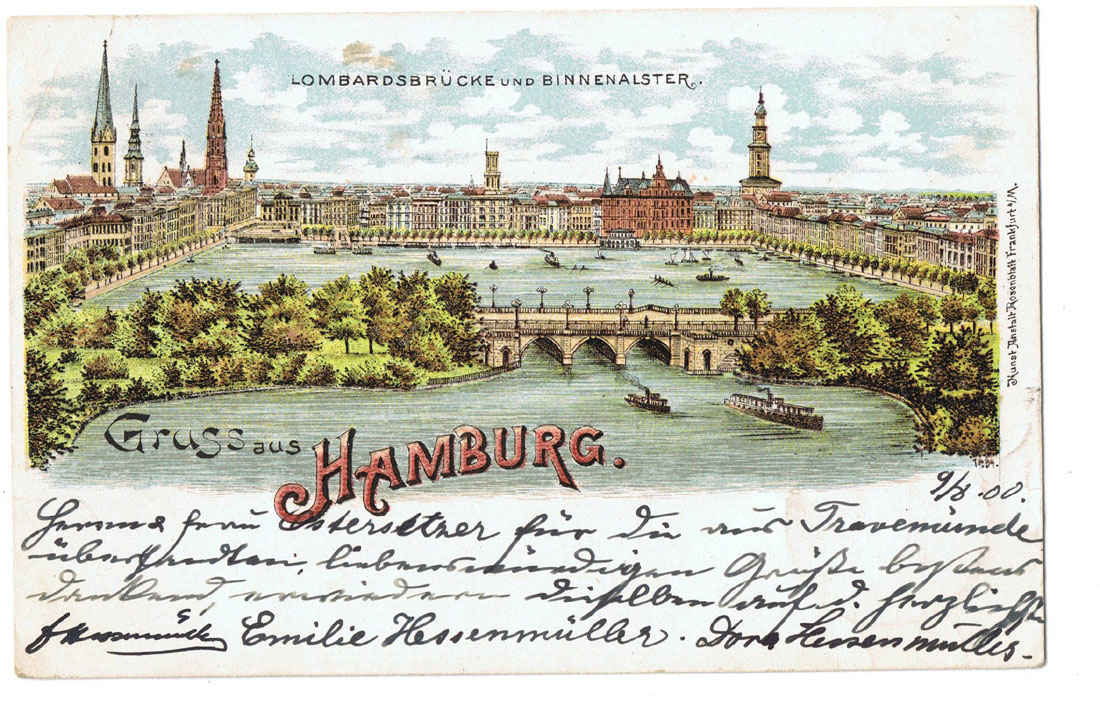 LOMBARDSBRÜCKE UND BINNENALSTER.
Kunst Anstalt Rosenblatt Frankfurt a/M
Gruss aus HAMBURG.
9/8.00.
Herrn & Frau Ostersetzer für die aus Travemünde
übersandten, liebenswürdigen Grüße bestens
dankend, erwiedern dieselben auf d. herzlichste
Emilie Hessenmüller. Dora Hessenmüller.